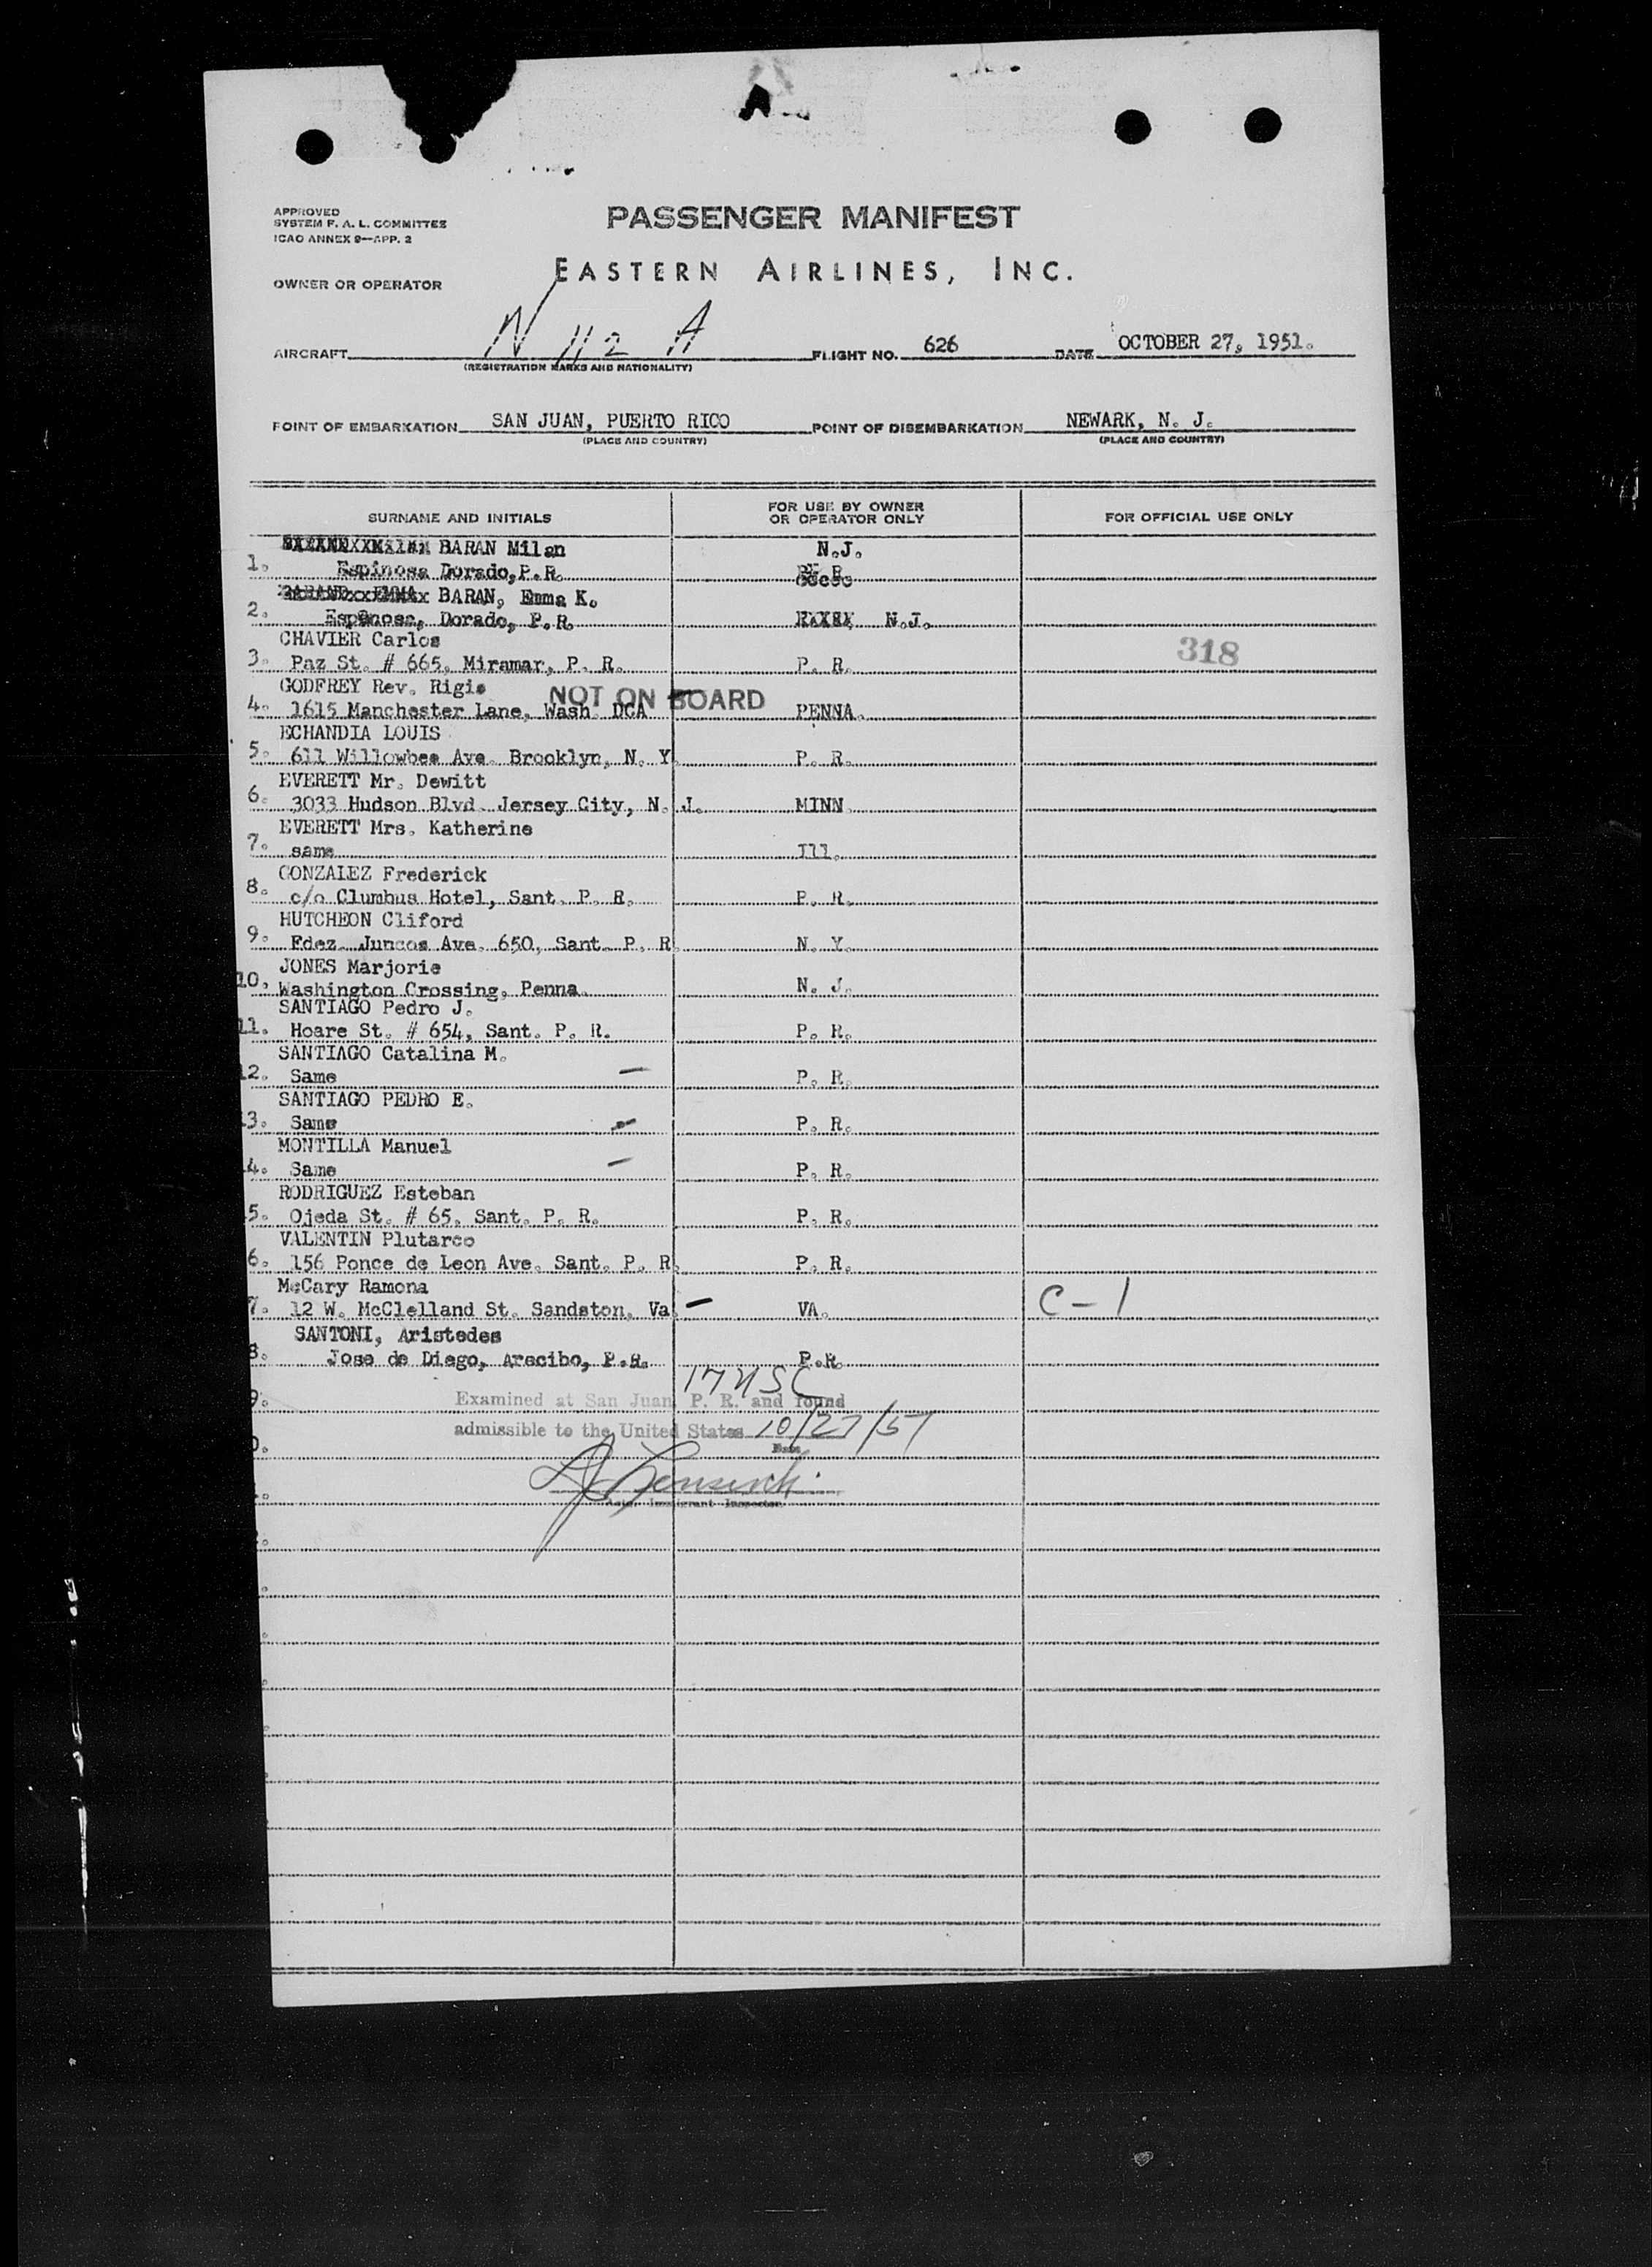 APPROVED
SYSTEM F. A. L. COMMITTEE
ICAO ANNEX 9—APP. 2
PASSENGER MANIFEST
OWNER OR OPERATOR
EASTERN AIRLINES, INC.
AIRCRAFT N 112 A FLIGHT NO. 626 DATE OCTOBER 27, 1951.
(REGISTRATION MARKS AND NATIONALITY)
POINT OF EMBARKATION SAN JUAN, PUERTO RICO POINT OF DISEMBARKATION NEWARK, N. J.
(PLACE AND COUNTRY) (PLACE AND COUNTRY)
SURNAME AND INITIALS FOR USE BY OWNER OR OPERATOR ONLY FOR OFFICIAL USE ONLY
BARAN Milan N.J.
1. Espinosa Dorado, P.R.
BARAN, Emma K.
2. Espinosa, Dorado, P.R. N.J.
CHAVIER Carlos
3. Paz St. # 665, Miramar, P. R. P. R. 318
GODFREY Rev. Rigis NOT ON BOARD
4. 1615 Manchester Lane, Wash. DCA PENNA.
ECHANDIA LOUIS
5. 611 Willowbee Ave. Brooklyn, N. Y. P. R.
EVERETT Mr. Dewitt
6. 3033 Hudson Blvd. Jersey City, N. J. MINN.
EVERETT Mrs. Katherine
7. same Ill.
GONZALEZ Frederick
8. c/o Clumbus Hotel, Sant. P. R. P. R.
HUTCHEON Cliford
9. Fdez. Juncos Ave. 650, Sant. P. R. N. Y.
JONES Marjorie
10. Washington Crossing, Penna. N. J.
SANTIAGO Pedro J.
11. Hoare St. # 654, Sant. P. R. P. R.
SANTIAGO Catalina M.
12. Same — P. R.
SANTIAGO PEDRO E.
3. Same — P. R.
MONTILLA Manuel
4. Same — P. R.
RODRIGUEZ Esteban
5. Ojeda St. # 65, Sant. P. R. P. R.
VALENTIN Plutarco
6. 156 Ponce de Leon Ave. Sant. P. R. P. R.
McCary Ramona
7. 12 W. McClelland St. Sandston, Va. — VA. C-1
SANTONI, Aristedes
8. Jose de Diego, Arecibo, P.R. P.R.
17 USC
9. Examined at San Juan, P. R. and found
admissible to the United States 10/27/51
0. Date
Immigrant Inspector